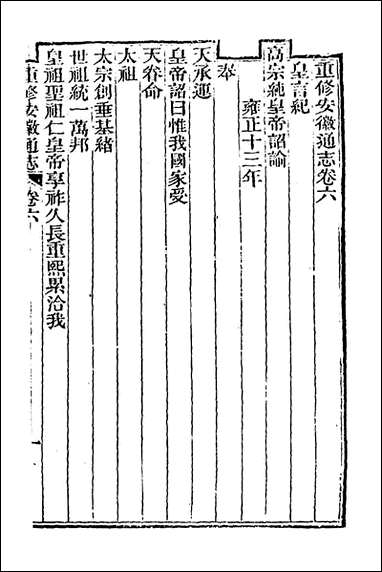 重修安徽通志卷六
皇言紀
高宗純皇帝詔諭
雍正十三年
奉
天承運
皇帝詔曰惟我國家受
天眷命
太祖
太宗創垂基緒
世祖統一萬邦
皇祖聖祖仁皇帝享祚久長重熙累洽我
重修安徽通志 卷六 一